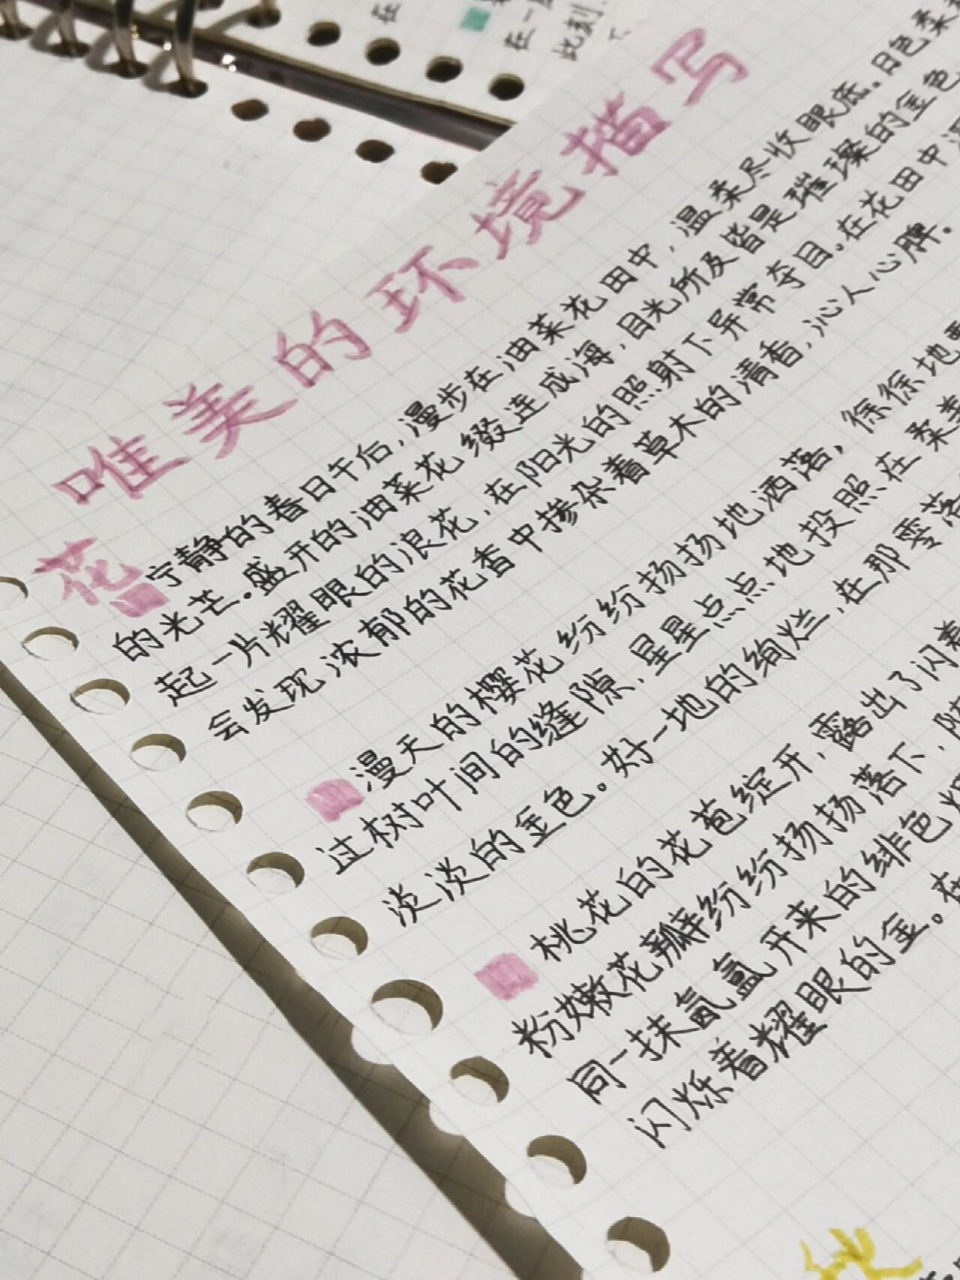 在
在一
此刻
唯美的环境描写
花
宁静的春日午后,漫步在油菜花田中,温柔尽收眼底.日色柔
的光芒.盛开的油菜花缀连成海,目光所及皆是璀璨的金色
起一片耀眼的浪花,在阳光的照射下异常夺目.在花田中
会发现浓郁的花香中掺杂着草木的清香,沁人心脾.
漫天的樱花纷纷扬扬地洒落,徐徐地
过树叶间的缝隙,星星点点地投照在柔
淡淡的金色。好一地的绚烂,在那零落
桃花的花苞绽开,露出了闪着
粉嫩花瓣纷纷扬扬落下,随
同一抹氤氲开来的绯色
闪烁着耀眼的金。在